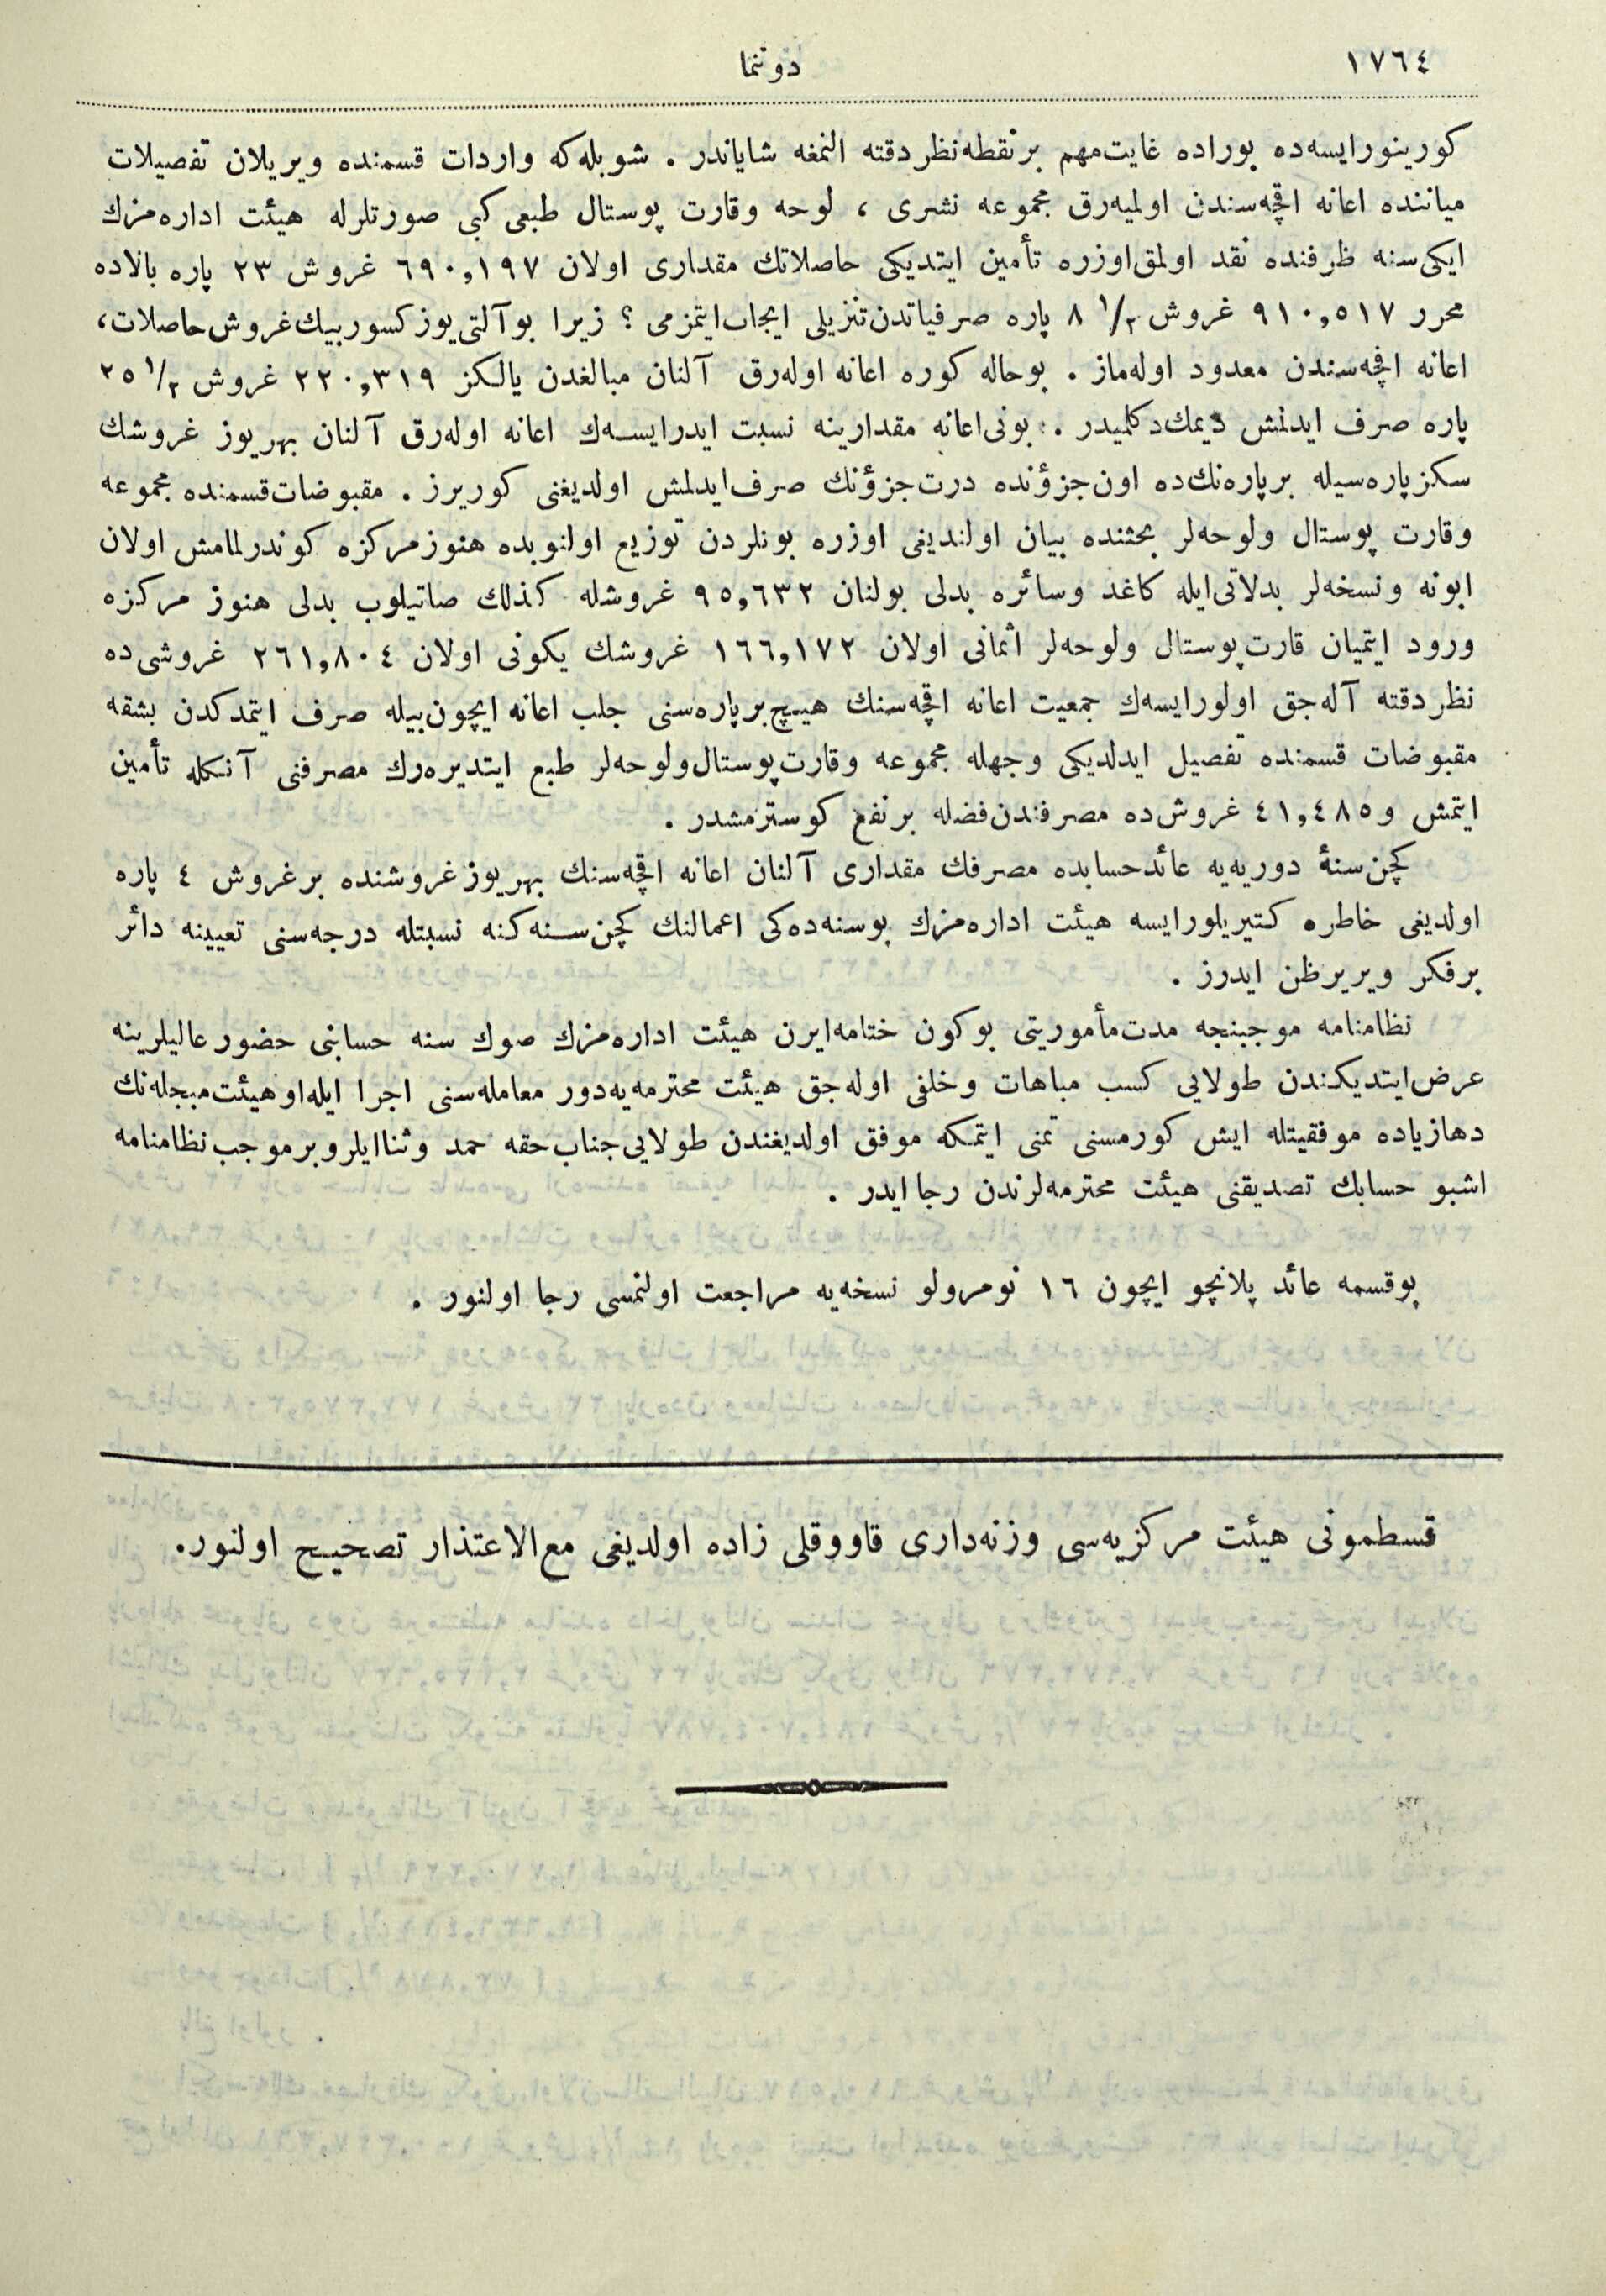 ١٧٦٤
دوننما
كورينورايسه‌ده بوراده غايت‌مهم برنقطه‌نظر دقته النمغه شاياندر . شويله‌كه واردات قسمنده ويريلان تفصيلات
مياننده اعانه اقچه‌سندن اولميه‌رق مجموعه نشرى ، لوحه وقارت پوستال طبعى كبى صورتلرله هيئت اداره‌مزك
ايكى‌سنه ظرفنده نقد اولمق‌اوزره تأمين ايتديكى حاصلاتك مقدارى اولان ٦٩٠,١٩٧ غروش ٢٣ پاره بالاده
محرر ٩١٠,٥١٧ غروش ١/٢ ٨ پاره صرفياتدن‌تنزيلى ايجاب‌ايتمزمى ؟ زيرا بوآلتى‌يوزكسوربيك‌غروش‌حاصلات،
اعانه اقچه‌سندن معدود اوله‌ماز . بوحاله كوره اعانه اوله‌رق آلنان مبالغدن يالكز ٢٢٠,٣١٩ غروش ١/٢ ٢٥
پاره صرف ايدلمش ديمك‌دكلميدر . بونى‌اعانه مقدارينه نسبت ايدرايسه‌ك اعانه اوله‌رق آلنان بهريوز غروشك
سكزپاره‌سيله برپاره‌نك‌ده اون‌جزؤنده درت‌جزؤنك صرف‌ايدلمش اولديغنى كوريرز . مقبوضات‌قسمنده مجموعه
وقارت پوستال ولوحه‌لر بحثنده بيان اولنديغى اوزره بونلردن توزيع اولنوبده هنوزمركزه كوندرلمامش اولان
ابونه ونسخه‌لر بدلاتى‌ايله كاغد وسائره بدلى بولنان ٩٥,٦٣٢ غروشله كذلك صاتيلوب بدلى هنوز مركزه
ورود ايتميان قارت‌پوستال ولوحه‌لر اثمانى اولان ١٦٦,١٧٢ غروشك يكونى اولان ٢٦١,٨٠٤ غروشى‌ده
نظر دقته آله‌جق اولورايسه‌ك جمعيت اعانه اقچه‌سنك هيچ‌برپاره‌سنى جلب اعانه ايچون‌بيله صرف ايتمدكدن بشقه
مقبوضات قسمنده تفصيل ايدلديكى وجهله مجموعه وقارت‌پوستال‌ولوحه‌لر طبع ايتديره‌رك مصرفنى آنكله تأمين
ايتمش و٤١,٤٨٥ غروش‌ده مصرفندن‌فضله برنفع كوسترمشدر .
كچن‌سنهٔ دوريه‌يه عائدحسابده مصرفك مقدارى آلنان اعانه اقچه‌سنك بهريوزغروشنده برغروش ٤ پاره
اولديغى خاطره كتيريلورايسه هيئت اداره‌مزك بوسنه‌ده‌كى اعمالنك كچن‌سنه‌كنه نسبتله درجه‌سنى تعيينه دائر
برفكر ويريرظن ايدرز .
نظامنامه موجبنجه مدت‌مأموريتى بوكون ختامه‌ايرن هيئت اداره‌مزك صوك سنه حسابنى حضور عاليلرينه
عرض‌ايتديكندن طولايى كسب مباهات وخلفى اوله‌جق هيئت محترمه‌يه‌دور معامله‌سنى اجرا ايله‌اوهيئت‌مبجله‌نك
دهازياده موفقيتله ايش كورمسنى تمنى ايتمكه موفق اولديغندن طولايى‌جناب‌حقه حمد وثناايلروبرموجب‌نظامنامه
اشبو حسابك تصديقنى هيئت محترمه‌لرندن رجاايدر .
بوقسمه عائد پلانچو ايچون ١٦ نومرولو نسخه‌يه مراجعت اولنمسى رجا اولنور .
قسطمونى هيئت مركزيه‌سى وزنه‌دارى قاووقلى زاده اولديغى مع‌الاعتذار تصحيح اولنور.